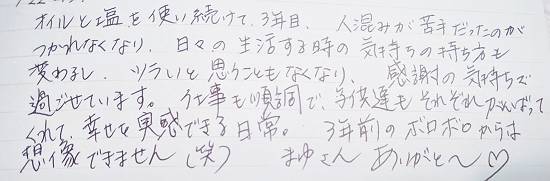 オイルと塩を使い続けて、3年目、人混みが苦手だったのが
つかれなくなり、日々の生活する時の気持ちの持ち方も
変わるし、ツラいと思うこともなくなり、感謝の気持ちで
過ごせています。仕事も順調で、子供達もそれぞれがんばって
くれて、幸せを実感できる日常。3年前のボロボロからは
想像できません(笑) まゆさん ありがと〜♡